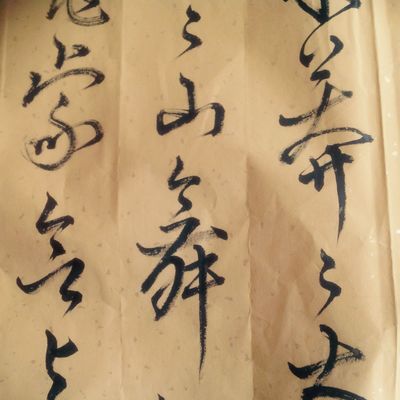 莽〻大
〻山舞
象欲与